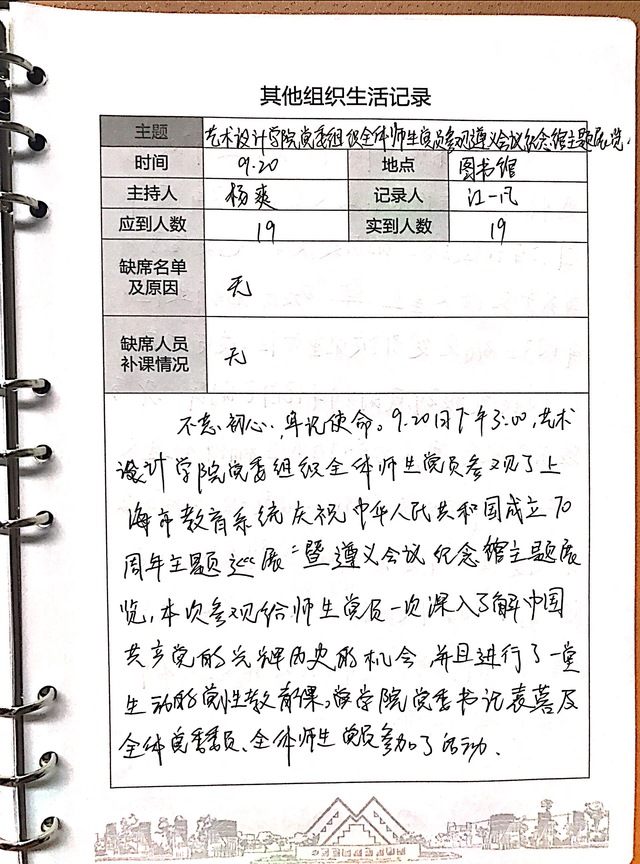 其他组织生活记录
主题 艺术设计学院党委组织全体师生党员参观遵义会议纪念馆主题展览
时间 9.20 地点 图书馆
主持人 杨爽 记录人 江一凡
应到人数 19 实到人数 19
缺席名单及原因 无
缺席人员补课情况 无
不忘初心，牢记使命。9.20日下午3:00，艺术
设计学院党委组织全体师生党员参观了上
海市教育系统庆祝中华人民共和国成立70
周年主题巡展"暨遵义会议纪念馆主题展
览，本次参观给师生党员一次深入了解中国
共产党的光辉历史的机会，并且进行了一堂
生动的党性教育课。学院党委书记袁蓉及
全体党委委员、全体师生党员参加了活动.